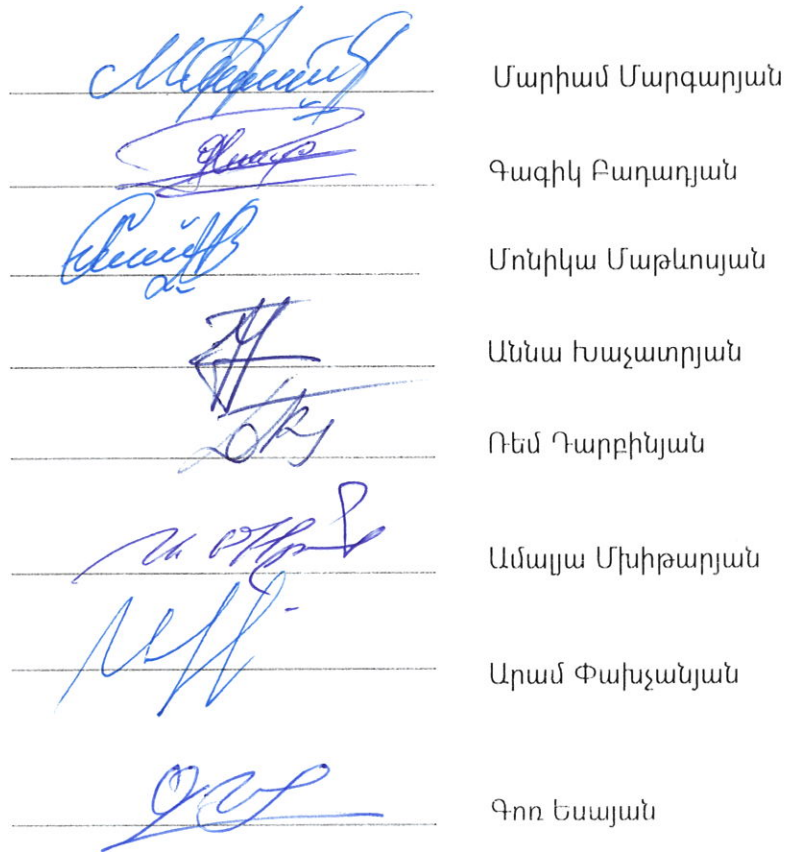 Մարիամ Մարգարյան
Գագիկ Բադադյան
Մոնիկա Մաթևոսյան
Աննա Խաչատրյան
Ռեմ Դարբինյան
Ամալյա Մխիթարյան
Արամ Փախչանյան
Գոռ Եսայան